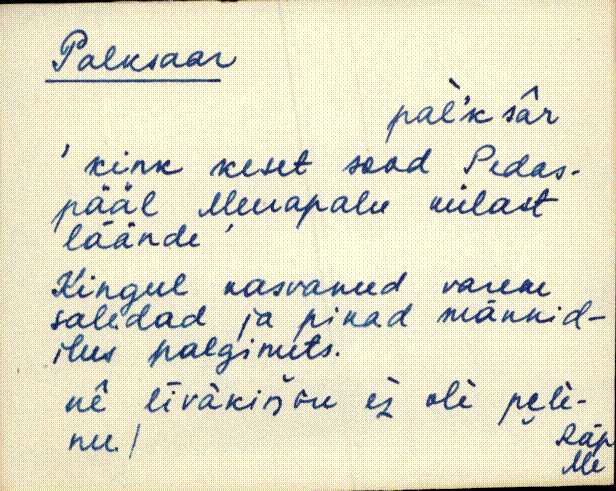 Palksaar
pàl'k sâr
' kink keset sood Pedas-
pääl Meerapalu külast
läände '
Kingul kasvanud varem
saledad ja pikad männid-
ilus palgimets.
nê
ei̭ʒ olè
nu. /
Räp
Me